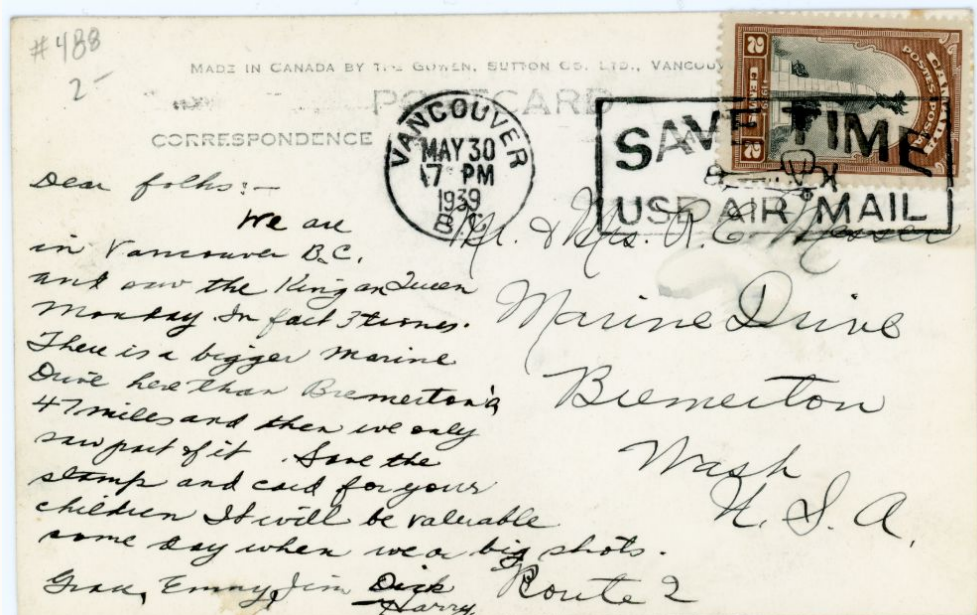 #488
2-
MADE IN CANADA BY THE GOWEN, SUTTON CO. LTD., VANCOU
POSTCARD
CORRESPONDENCE
VANCOUVER
MAY 30
17 PM
1939
B.C.
SAVE TIME
USE AIR MAIL
2 CENTS 2
CANADA
POSTES-POSTAGE
Dear folks:-
We are
in Vancouver B.C.
and saw the King an Queen
Monday. In fact 3 times.
There is a bigger Marine
Drive here than Bremerton's
47 miles and then we only
saw part of it. Save the
stamp and card for your
children It will be valuable
some day when we a big shots.
Grace, Emmy, Jim Dick
Harry
Mr. & Mrs. R. C. Messer
Marine Drive
Bremerton
Wash
U. S. A.
Route 2